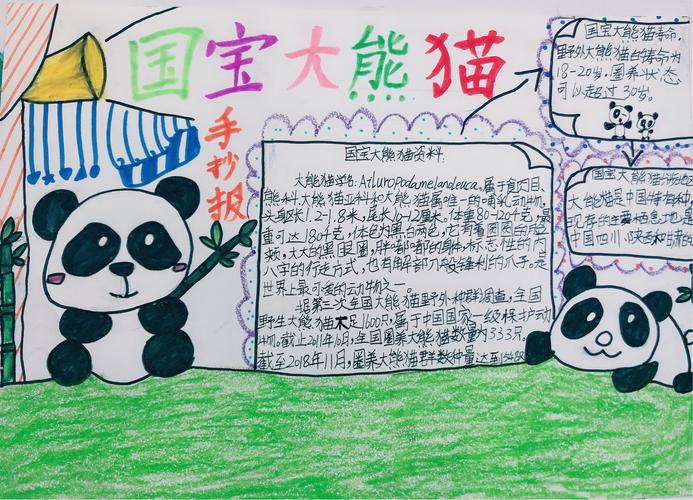 国宝大熊猫
手抄报
国宝大熊猫资料
大熊猫学名:Ailuropodamelanoleuca.属于食肉目、
熊科、大熊猫亚科和大熊猫属唯一的哺乳动物,
头躯长1.2-1.8米,尾长10-12厘米。体重80-120千克,最
重可达180千克,体色为黑白两色,它有着圆圆的脸
颊,大大的黑眼圈,胖嘟嘟的身体,标志性的内
八字的行走方式,也有解剖刀般锋利的爪子。是
世界上最可爱的动物之一。
据第三次全国大熊猫野外种群调查,全国
野生大熊猫不足1600只,属于中国国家一级保护动
物。截止2011年10月,全国圈养大熊猫数量为333只。
截至2018年11月,圈养大熊猫群数种量达至
国宝大熊猫寿命,
野外大熊猫的寿命为
18-20岁,圈养状态
可以超过30岁。
国宝大熊猫分
大熊猫是中国特有种,
现存的主要栖息地是
中国四川、陕西和